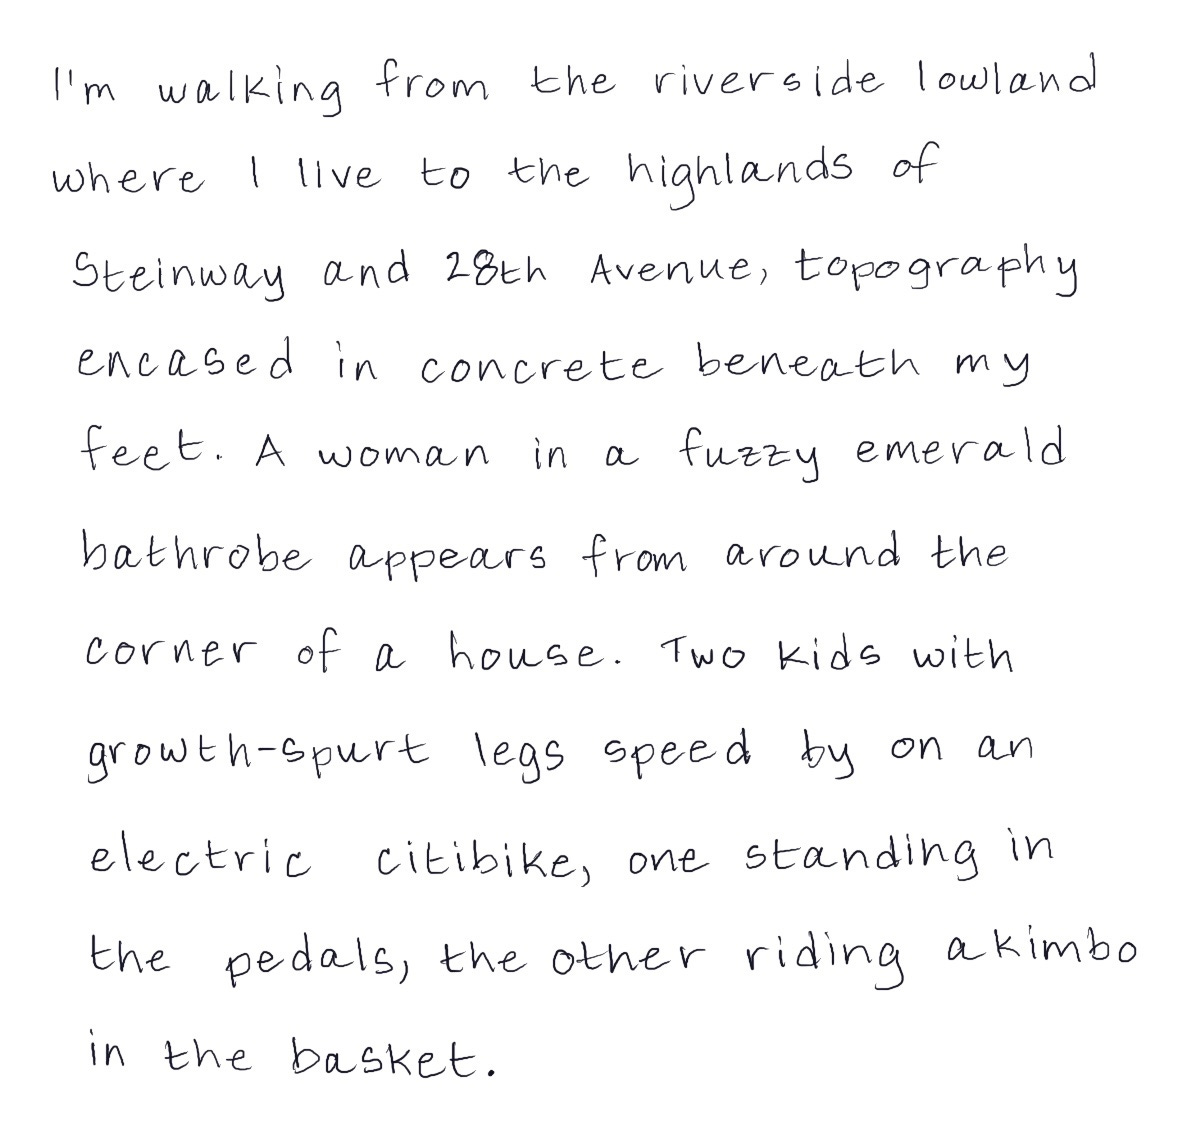 I'm walking from the riverside lowland
where I live to the highlands of
Steinway and 28th Avenue, topography
encased in concrete beneath my
feet. A woman in a fuzzy emerald
bathrobe appears from around the
corner of a house. Two kids with
growth-spurt legs speed by on an
electric citibike, one standing in
the pedals, the other riding akimbo
in the basket.